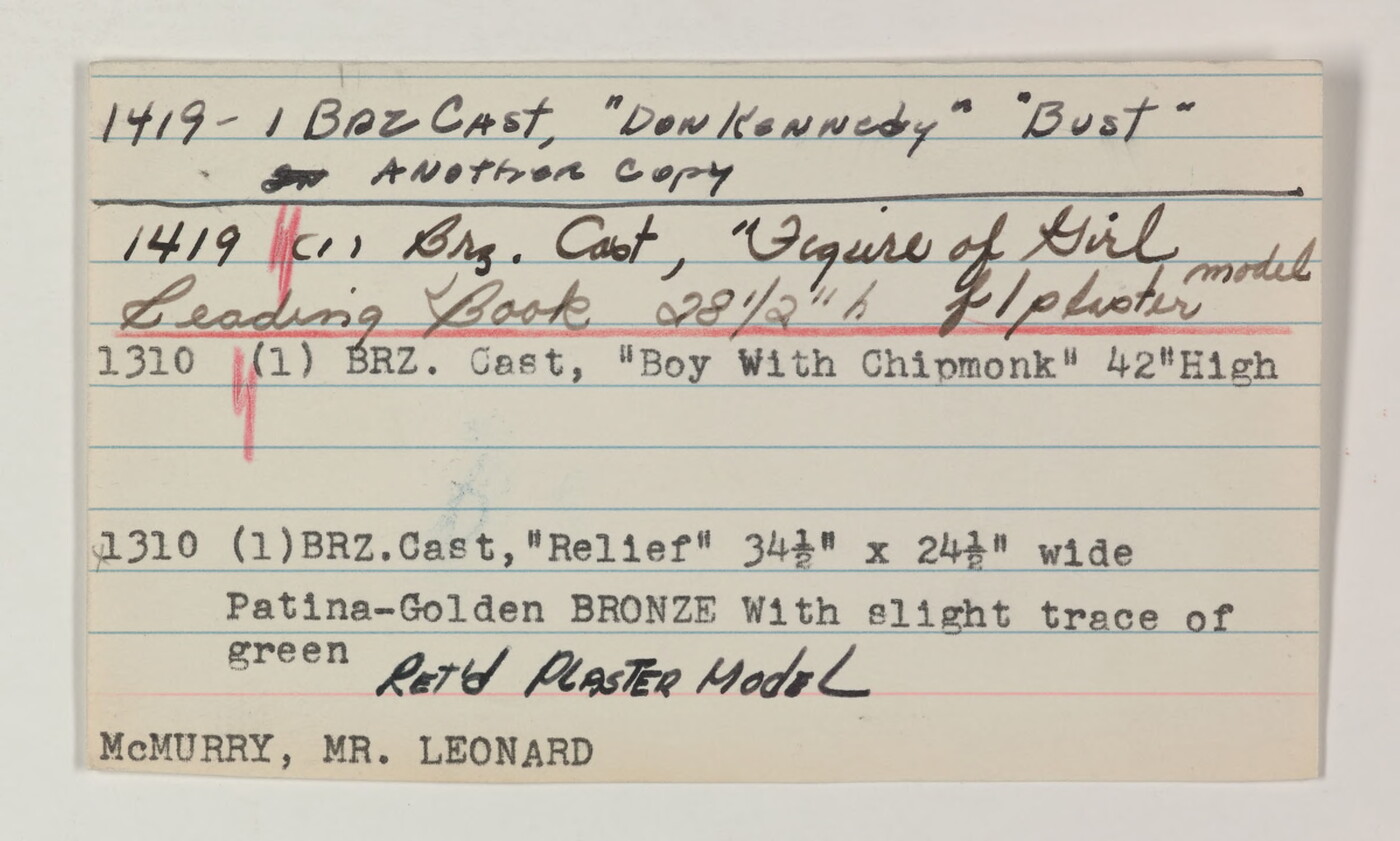 1419- 1 BRZ CAst, "Don Kennedy" "Bust"
ANothER Copy
1419 (1) Brz. Cast, "Figure of Girl
Leading Book 28 1/2" h f/ plaster model
1310 (1) BRZ. Cast, "Boy With Chipmonk" 42"High
1310 (1)BRZ.Cast,"Relief" 34½" x 24½" wide
Patina-Golden BRONZE With slight trace of
green RET'd PLASTER ModEL
McMURRY, MR. LEONARD